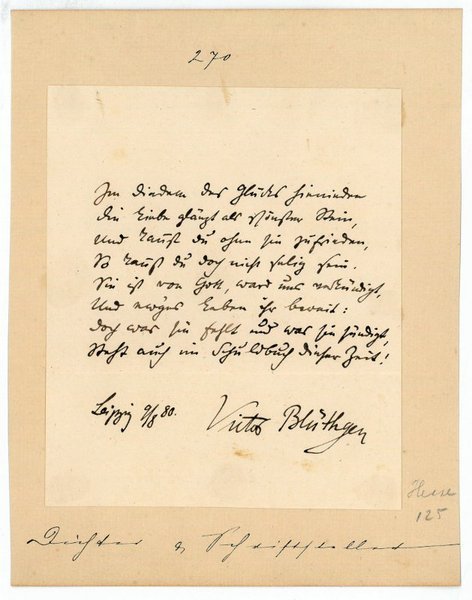 270
Im Diadem des Glücks hienieden
die Liebe glänzt als schönster Stein,
Und kannst du ohne sie zufrieden,
So kannst du doch nicht selig sein.
Sie ist von Gott, ward uns verkündigt,
Und ew'ges Leben ihr bereit:
doch was sie fehlt und was sie sündigt,
Steht auch im Schuldbuch dieser Zeit!
Leipzig 9/8 80.
Victor Blüthgen
125
Dichter & Schriftsteller